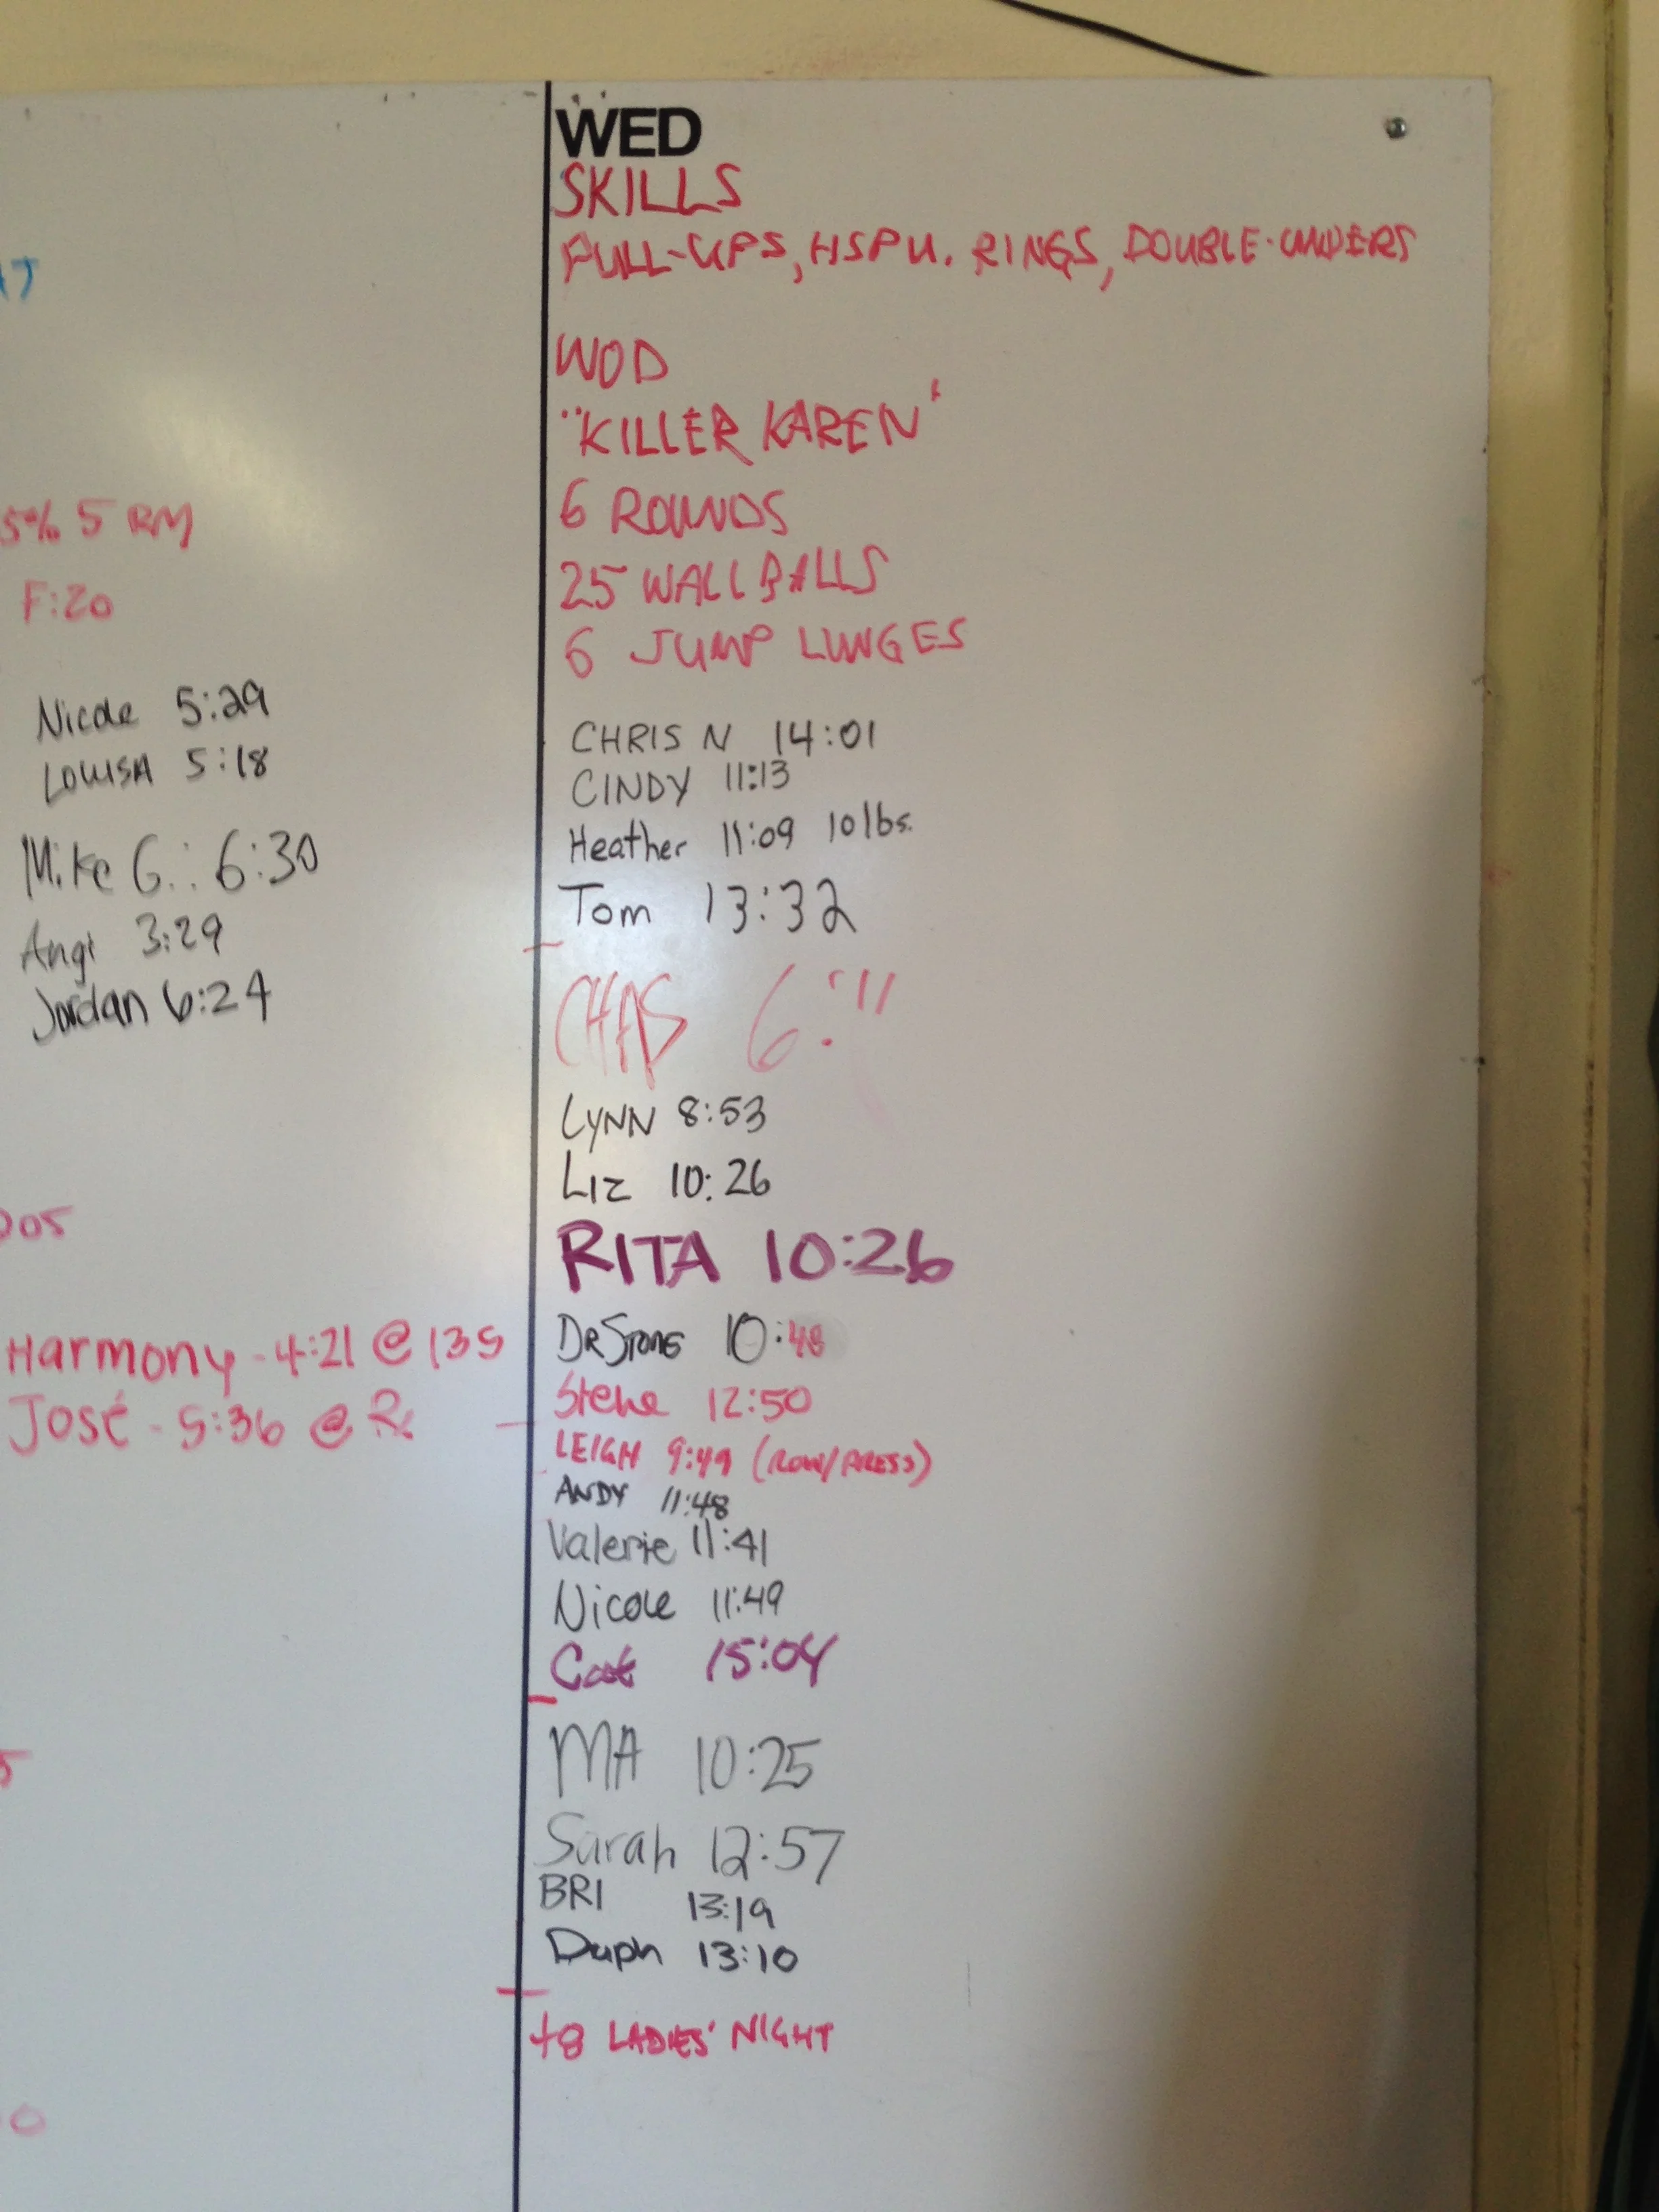 5% 5 RM
F:20
Nicole 5:29
LOUISA 5:18
Mike G.: 6:30
Angi 3:29
Jordan 6:24
Harmony - 4:21 @ 135
José - 5:36 @ Rx
WED
SKILLS
PULL-UPS, HSPU. RINGS, DOUBLE-UNDERS
WOD
"KILLER KAREN"
6 ROUNDS
25 WALL BALLS
6 JUMP LUNGES
CHRIS N 14:01
CINDY 11:13
Heather 11:09 10 lbs.
Tom 13:32
CHAS 6:11
LYNN 8:53
LIZ 10:26
RITA 10:26
DR STONE 10:48
Steve 12:50
LEIGH 9:49 (ROW/PRESS)
ANDY 11:48
Valerie 11:41
Nicole 11:49
Cat 15:04
MA 10:25
Sarah 12:57
BRI 13:19
Daph 13:10
+8 LADIES' NIGHT